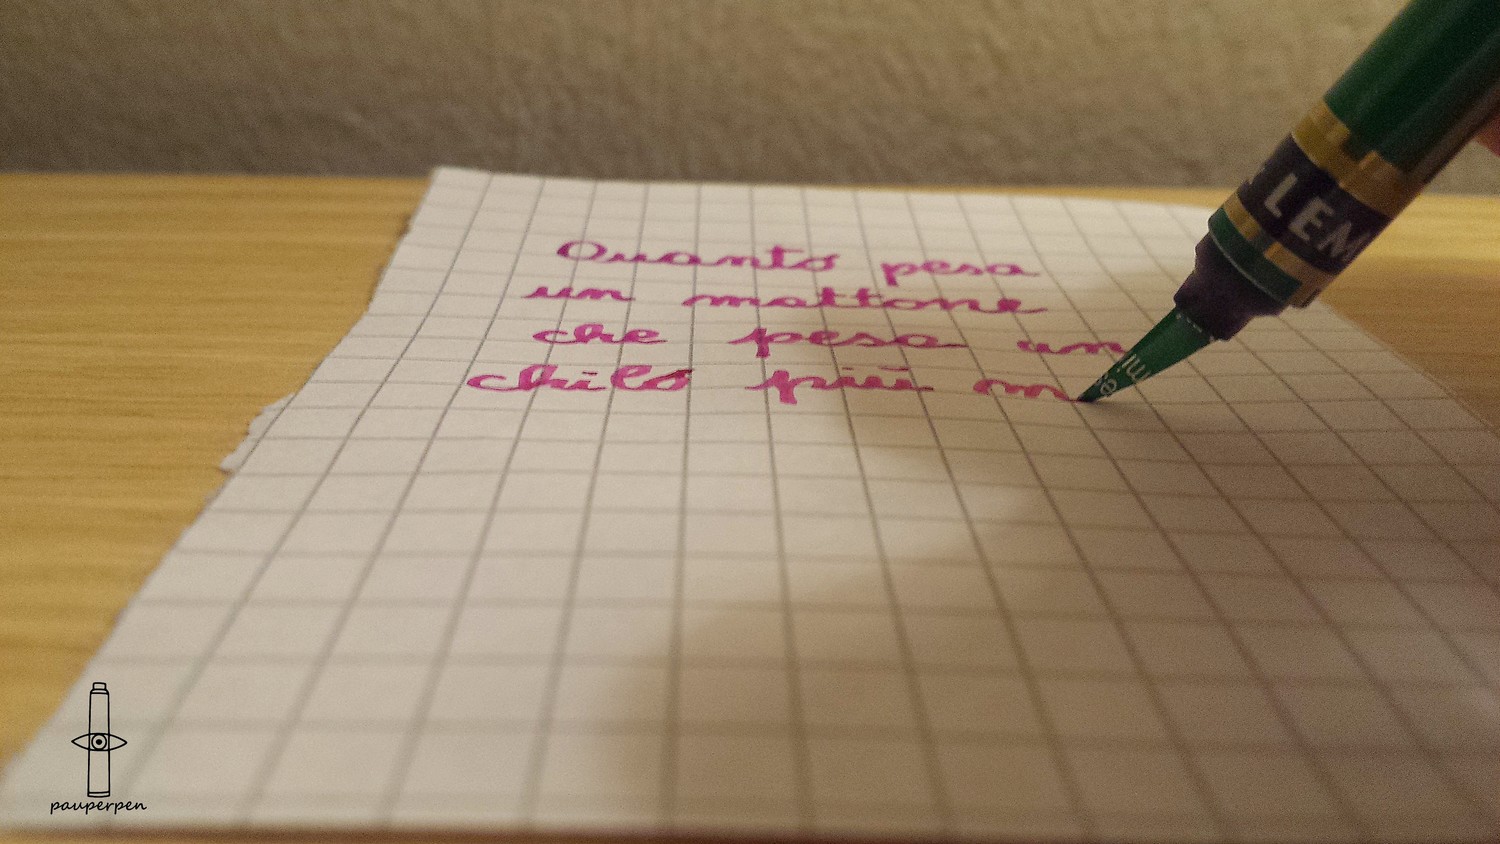 Quanto pesa
un mattone
che pesa un
chilo più m
LEM
pauperpen